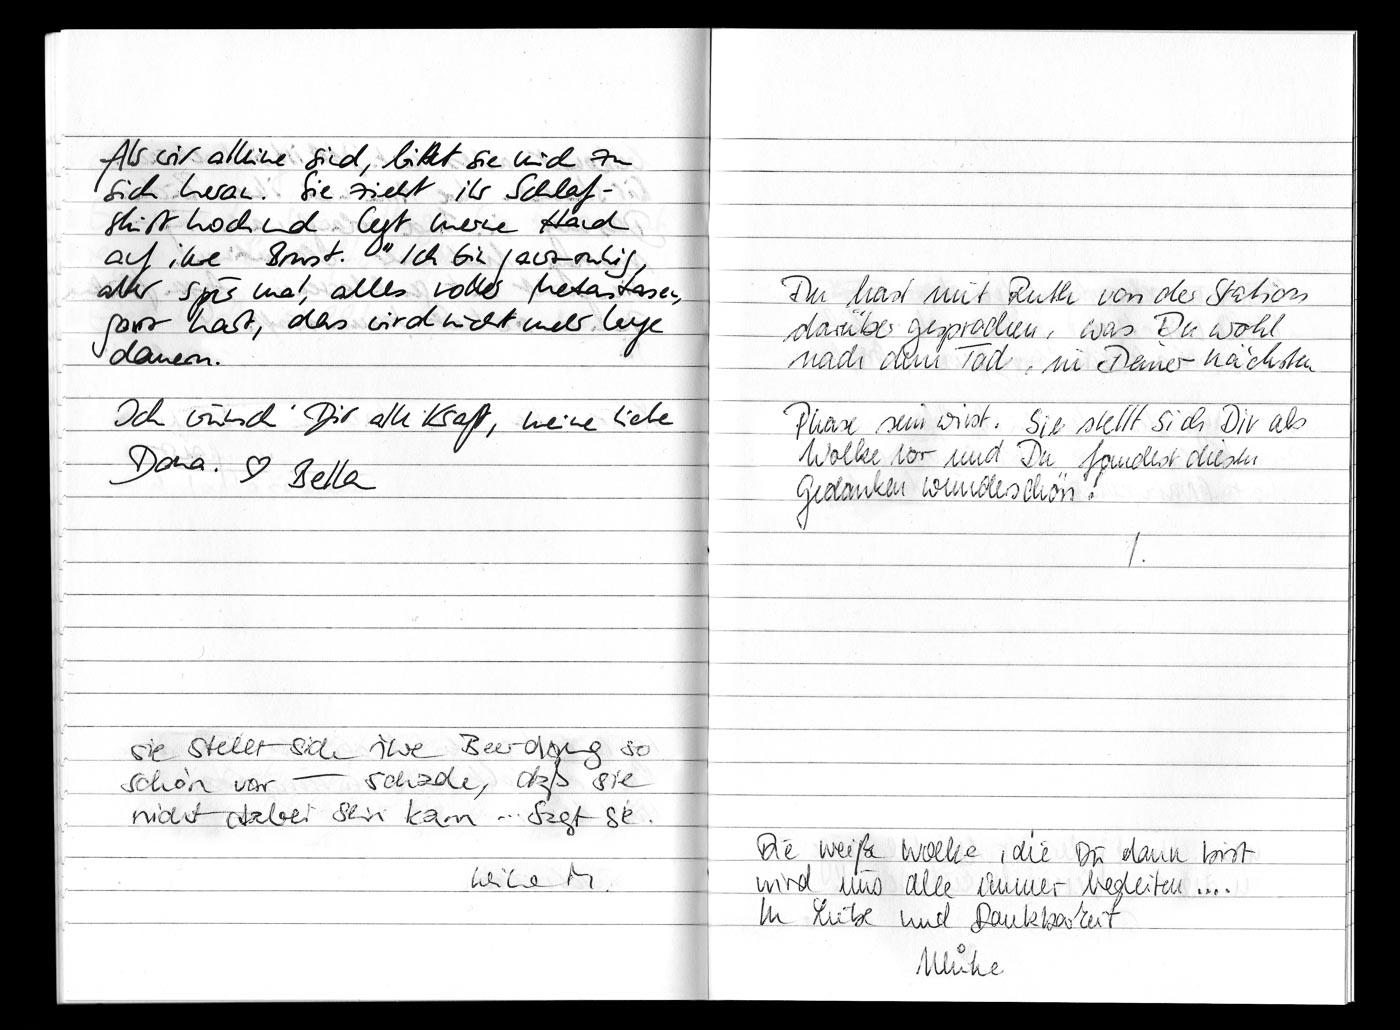 Als wir alleine sind, bittet sie mich zu
sich heran. Sie zieht ihr Schlaf-
shirt hoch und legt meine Hand
auf ihre Brust. "Ich bin ganz ruhig,
aber spür mal, alles voller Metastasen,
ganz hart, das wird nicht mehr lange
dauern.
Ich wünsch' Dir alle Kraft, meine liebe
Dana. ♡ Bella
sie stellt sich ihre Beerdigung so
schön vor — schade, daß sie
nicht dabei sein kann ... sagt sie.
M.
Du hast mit Ruth von der Station
darüber gesprochen, was Du wohl
nach dem Tod, in Deiner nächsten
Phase sein wirst. Sie stellt sich Dir als
Wolke vor und Du fandest diesen
Gedanken wunderschön!
/.
Die weiße Wolke, die Du dann bist
wird uns alle immer begleiten ....
In Liebe und Dankbarkeit
Ulrike